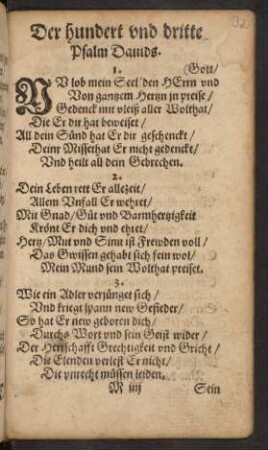 32
Der hundert vnd dritte
Psalm Dauids.
1. Gott/
NV lob mein Seel den HErrn vnd
Von gantzem Hertzn jn preise/
Gedenck mit vleiß aller Wolthat/
Die Er dir hat beweiset/
All dein Sünd hat Er dir geschenckt/
Deinr Missethat Er nicht gedenckt/
Vnd heilt all dein Gebrechen.
2.
Dein Leben rett Er allezeit/
Allem Vnfall Er wehret/
Mit Gnad/ Güt vnd Barmhertzigkeit
Krönt Er dich vnd ehret/
Hertz/ Mut vnd Sinn ist Frewden voll/
Das Gwissen gehabt sich fein wol/
Mein Mund sein Wolthat preiset.
3.
Wie ein Adler verjünget sich/
Vnd kriegt spann new Gefieder/
So hat Er new geboren dich/
Durchs Wort vnd sein Geist wider/
Der Herrschafft Grechtigkeit vnd Gricht/
Die Elenden verlest Er nicht/
Die vnrecht müssen leiden.
M iiij Sein